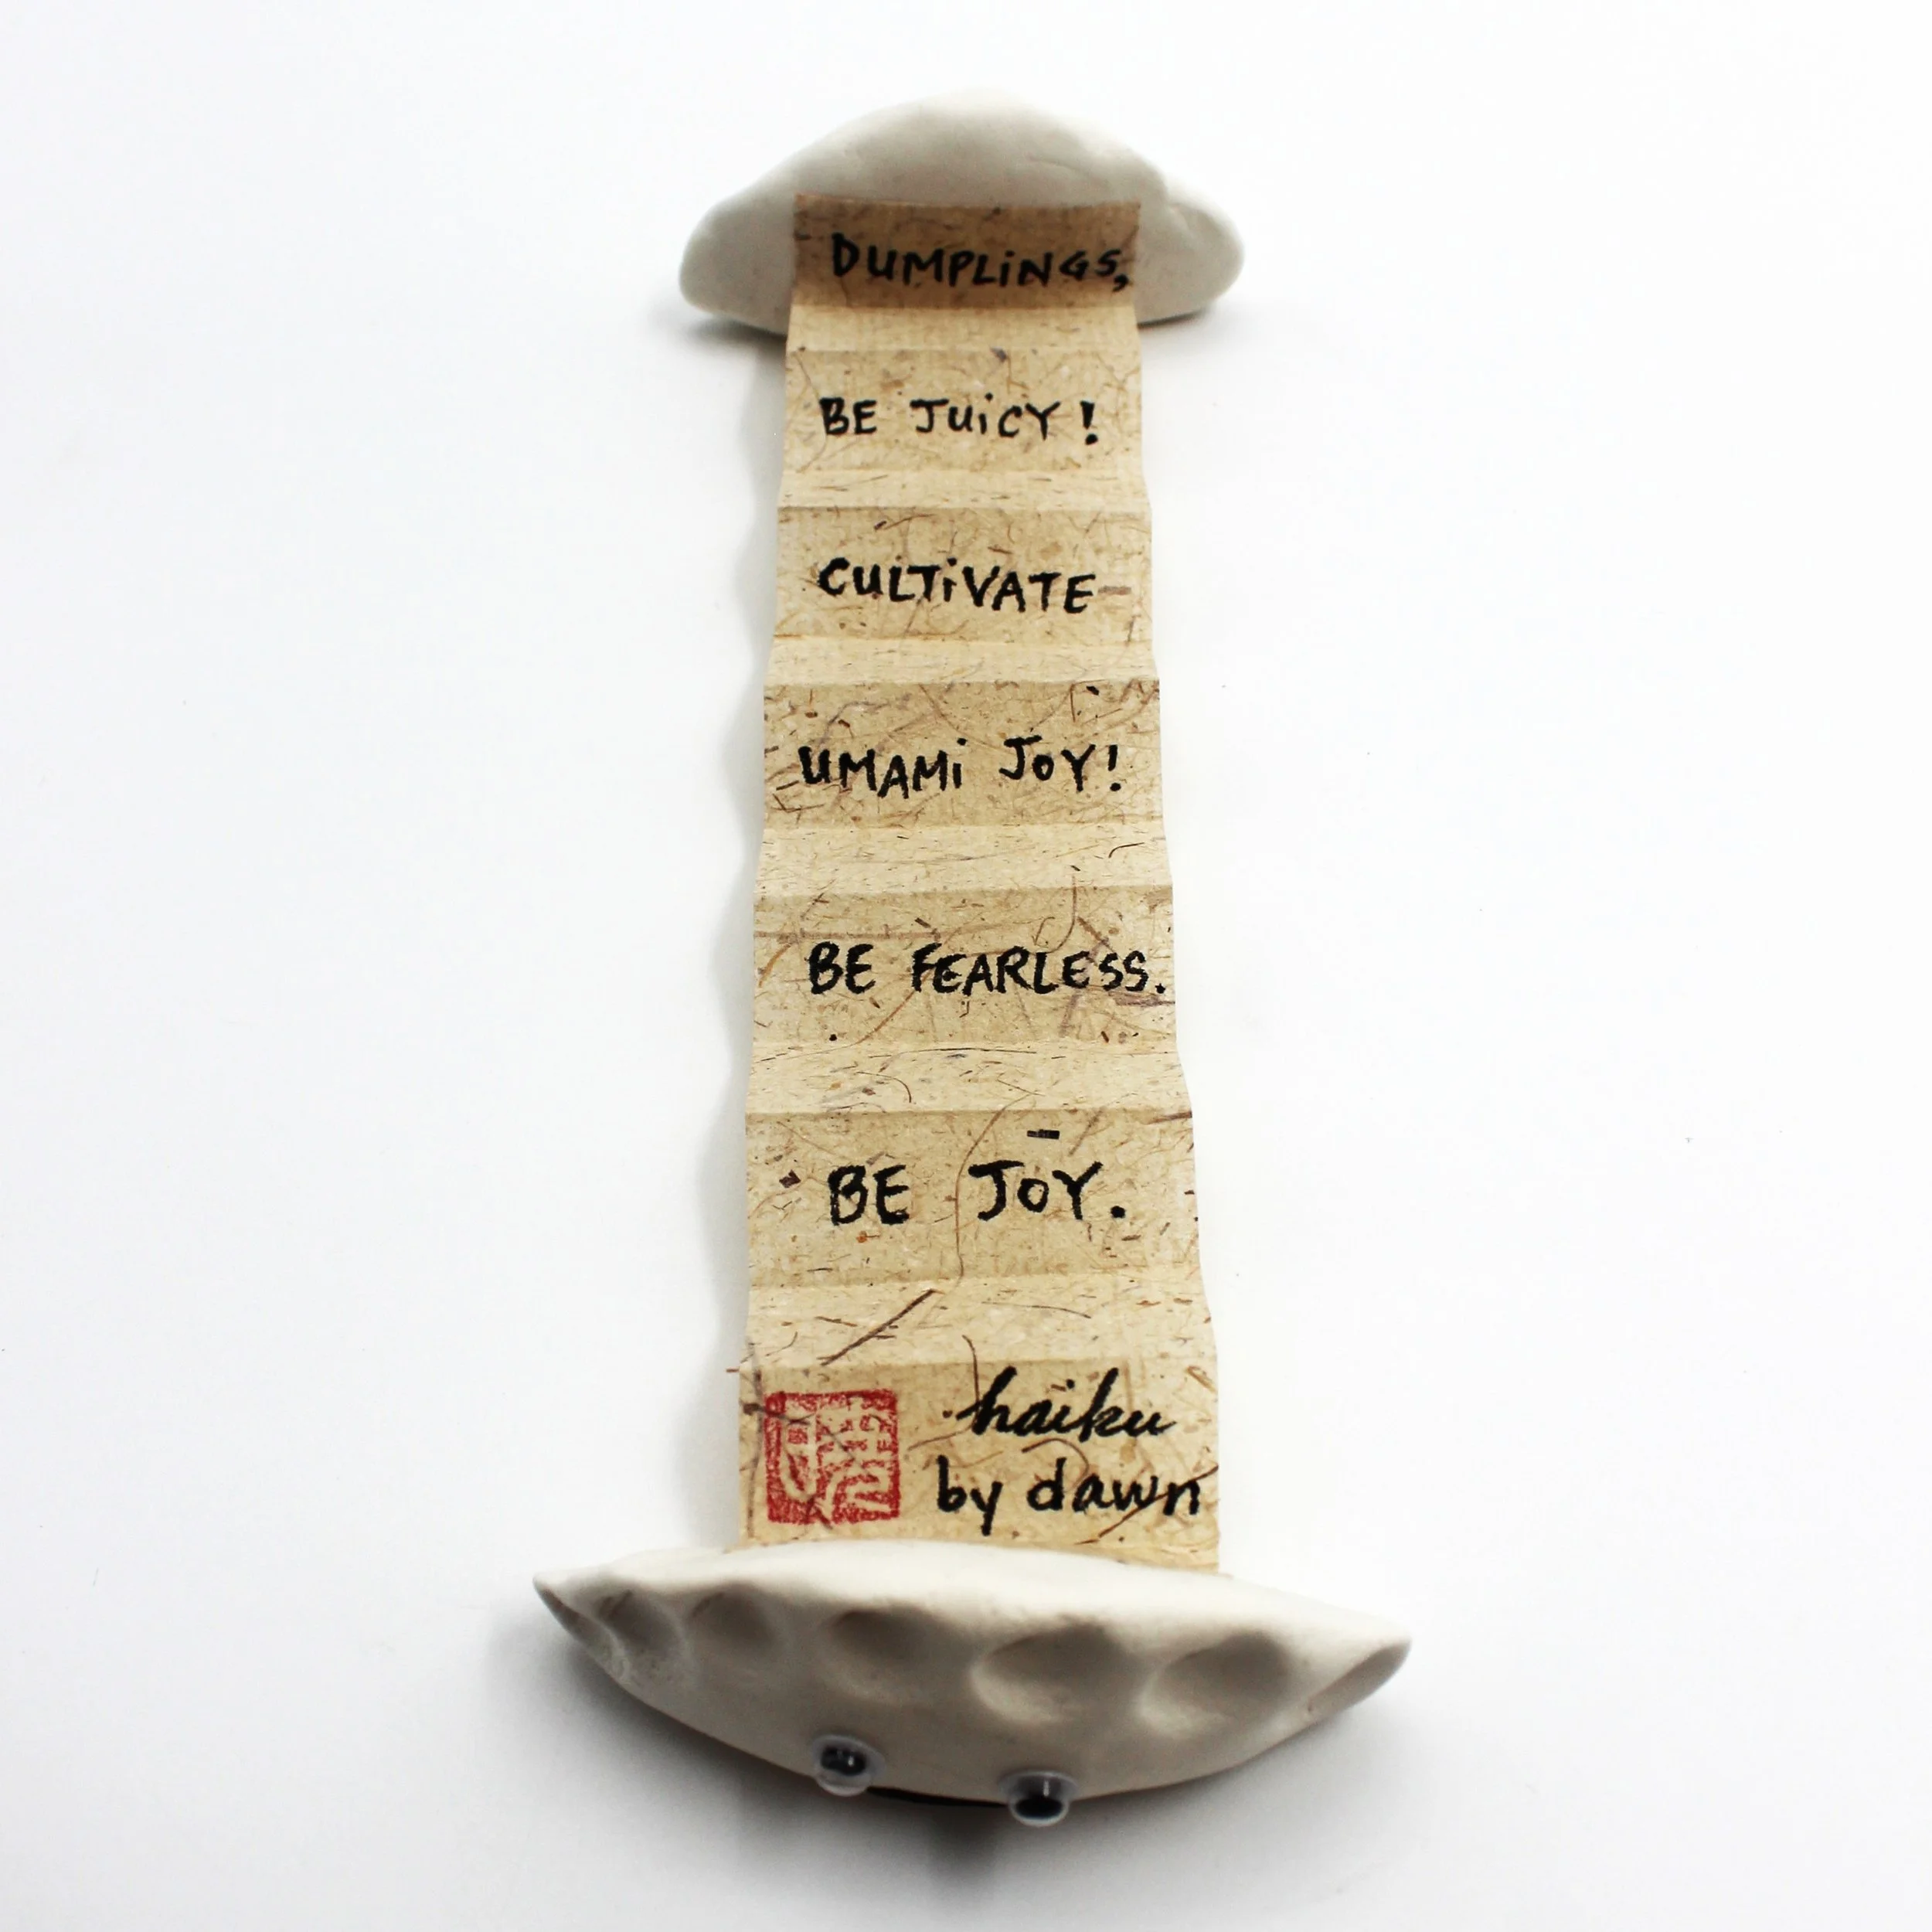 DUMPLiNGS,
BE JUiCY!
CULTiVATE
UMAMi JOY!
BE FEARLESS.
BE JOY.
haiku
by dawn